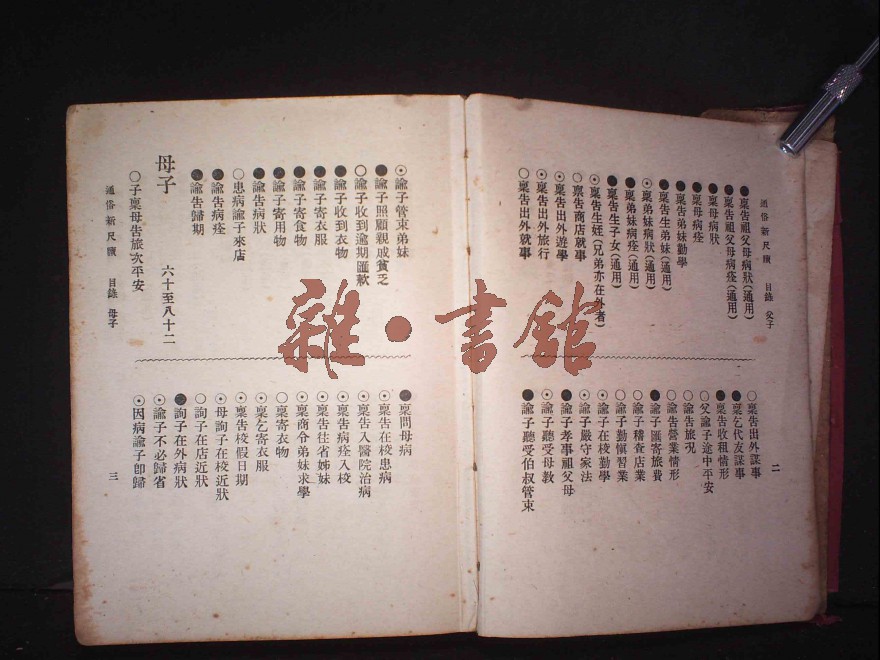 通俗新尺牘　目錄　父子
二
●稟告祖父母病狀(通用)
●稟告祖父母病痊(通用)
●稟母病狀
●稟母病痊
●稟告弟妹勸學
●稟告生弟妹(通用)
⊙稟弟妹病狀(通用)
●稟弟妹病痊(通用)
●稟告生子女(通用)
⊙稟告生姪(兄弟亦在外者)
○稟告商店就事
⊙稟告出外遊學
⊙稟告出外旅行
○稟告出外就事
○稟告出外謀事
●稟乞代友謀事
●稟告收租情形
○父諭子途中平安
⊙諭告旅况
⊙諭告營業情形
●諭子匯寄旅費
○諭子稽查店業
○諭子勤愼習業
⊙諭子在校勤學
⊙諭子嚴守家法
●諭子孝事祖父母
⊙諭子聽受母教
●諭子聽受伯叔管束
⊙諭子管束弟妹
●諭子照顧親戚貧乏
○諭子收到逾期匯款
●諭子收到衣物
●諭子寄衣服
●諭子寄食物
●諭子寄用物
●諭告病狀
○患病諭子來店
●諭告病痊
●諭告歸期
母子　六十至八十二
○子稟母告旅次平安
●稟問母病
⊙稟告在校患病
⊙稟告入醫院治病
⊙稟告病痊入校
⊙稟告往省姊妹
⊙稟商令弟妹求學
○稟寄衣物
⊙稟乞寄衣服
⊙稟告校假日期
⊙母詢子在校近狀
○詢子在店近狀
●詢子在外病狀
⊙諭子不必歸省
⊙因病諭子卽歸
通俗新尺牘　目錄　母子
三
雜·書館